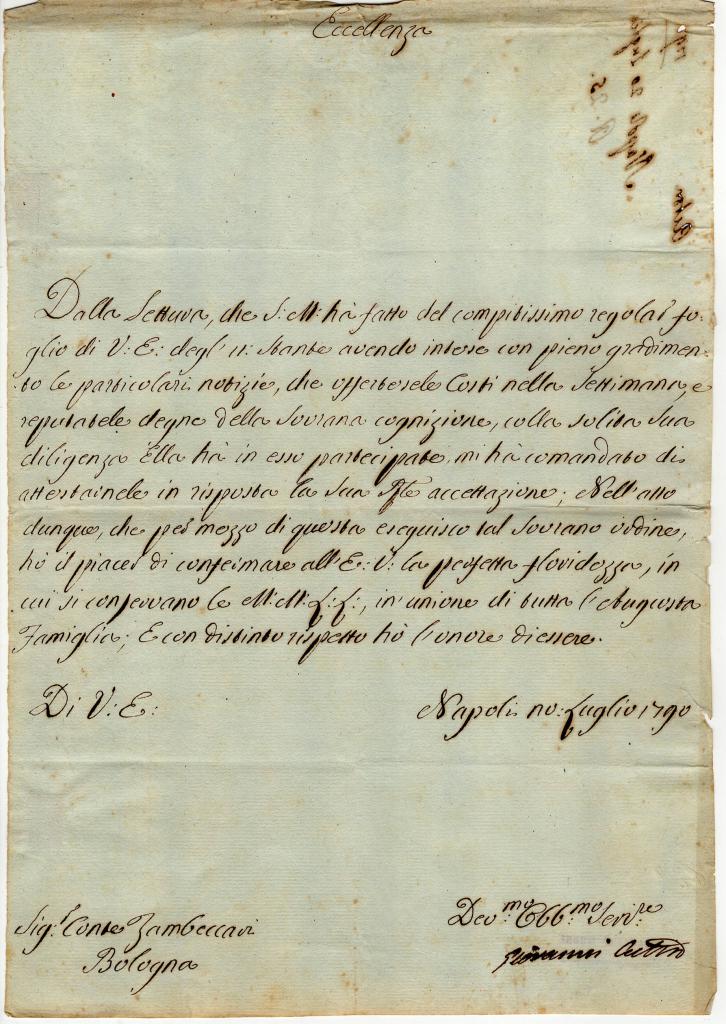 Eccellenza
Dalla lettura, che S: M: hà fatto del compitissimo regolar fo-
glio di V: E: degl' 11: stante avendo intese con pieno gradimen-
to le particolari notizie, che offertesele Costì nella Settimana, e
reputatele degne della Sovrana cognizione, colla solita Sua
diligenza Ella hà in esso partecipate, mi hà comandato di
attestarnele in risposta la Sua Rle accettazione; Nell' atto
dunque, che per mezzo di questa eseguisco tal Sovrano ordine,
hò il piacer di confermare all' E: V: la perfetta floridezza, in
cui si conservano le M: M: L: L:, in unione di tutta l' Augusta
Famiglia; E con distinto rispetto hò l' onore di essere.
Di V: E:
Napoli 20: Luglio 1790
Sig:r Conte Zambeccari
Bologna
Dev:mo Obb:mo Serv:re
Giovanni Acton